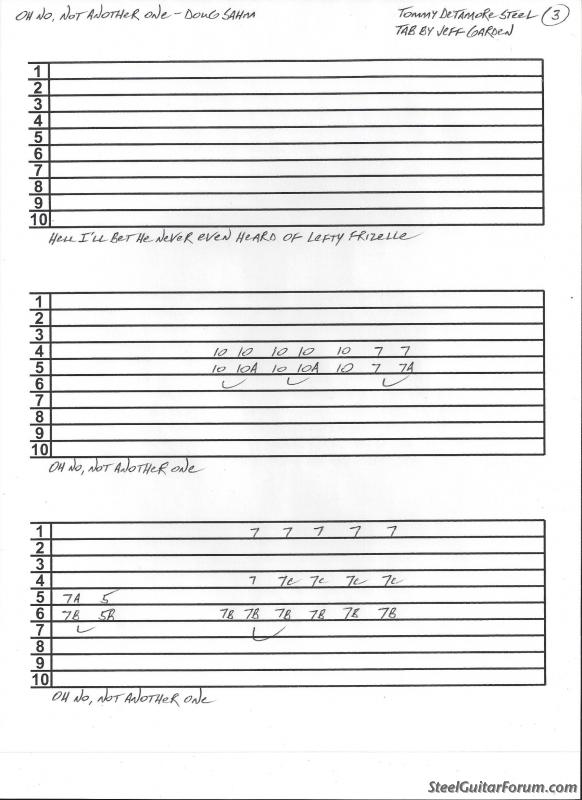 OH NO, NOT ANOTHER ONE - DOUG SAHM
TOMMY DETAMORE STEEL 3
TAB BY JEFF GARDEN
1
2
3
4
5
6
7
8
9
10
HELL I'LL BET HE NEVER EVEN HEARD OF LEFTY FRIZELLE
1
2
3
4 10 10 10 10 10 7 7
5 10 10A 10 10A 10 7 7A
6
7
8
9
10
OH NO, NOT ANOTHER ONE
1 7 7 7 7 7
2
3
4 7 7C 7C 7C 7C
5 7A 5
6 7B 5B 7B 7B 7B 7B 7B 7B
7
8
9
10
OH NO, NOT ANOTHER ONE
SteelGuitarForum.com